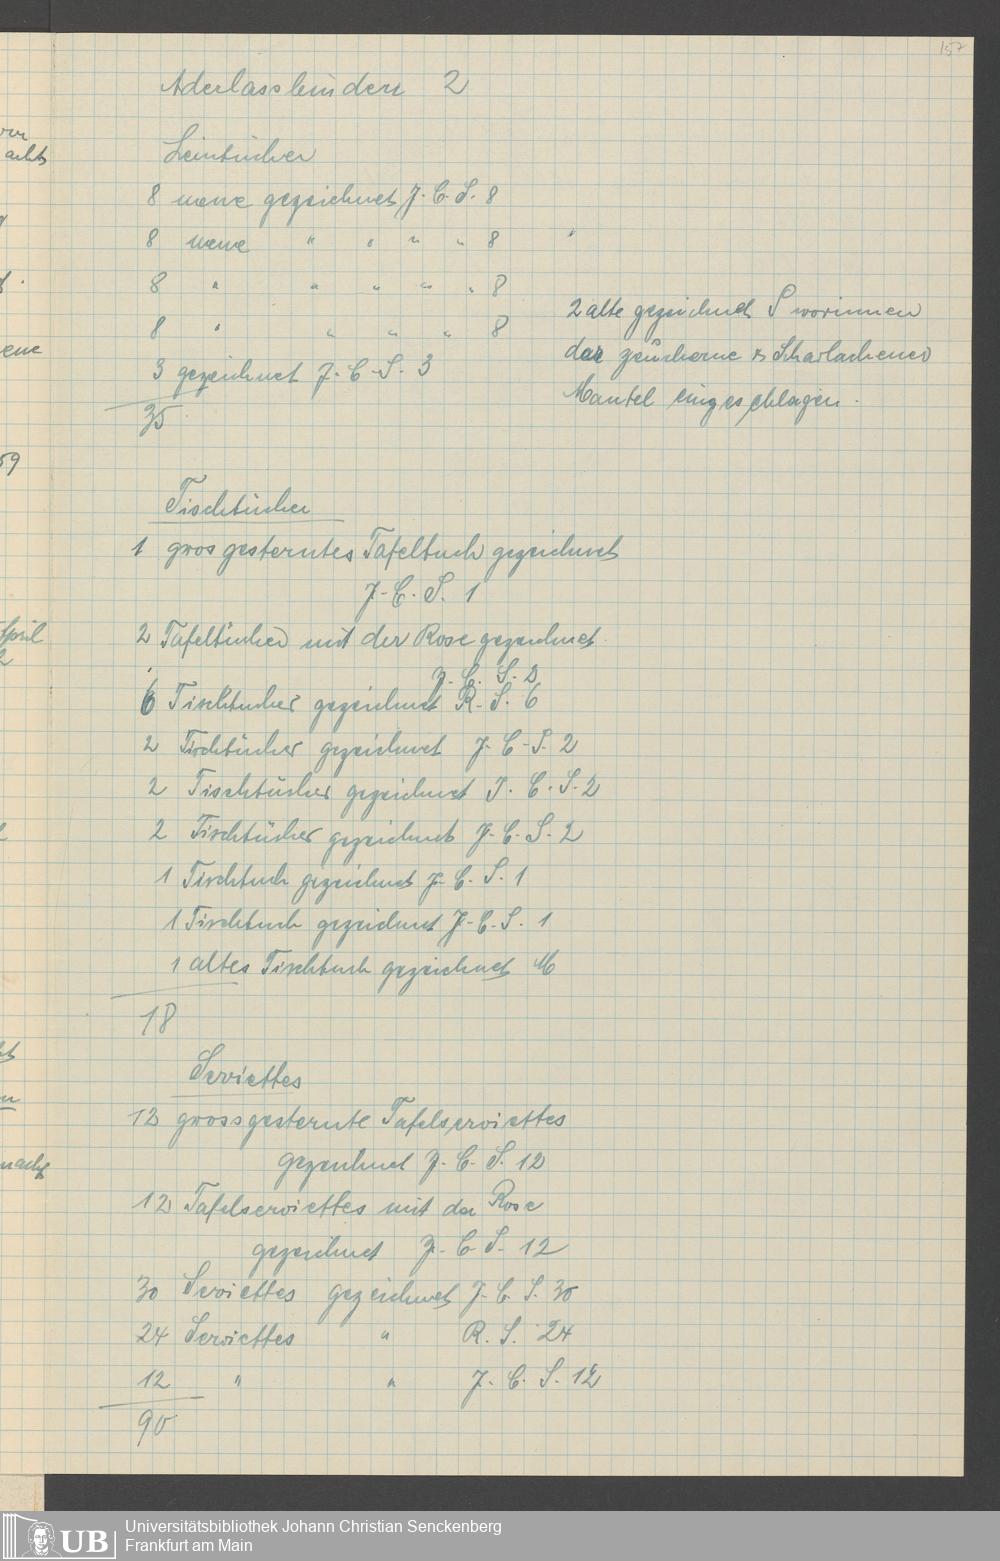 157
Aderlassbinden 2
Leintücher
8 neue gezeichnet J. C. S. 8
8 neue " " " " 8 "
8 " " " " " 8
8 " " " " 8
3 gezeichnet J. C. S. 3
35
2 alte gezeichnet S worinnen
der & Scharlachener
Mantel eingeschlagen.
Tischtücher
1 gros gesterntes Tafeltuch gezeichnet
J. C. S. 1
2 Tafeltücher mit der Rose gezeichnet
J. C. S. 2
6 Tischtücher gezeichnet R. S. 6
2 Tischtücher gezeichnet J. C. S. 2
2 Tischtücher gezeichnet J. C. S. 2
2 Tischtücher gezeichnet J. C. S. 2
1 Tischtuch gezeichnet J. C. S. 1
1 Tischtuch gezeichnet J. C. S. 1
1 altes Tischtuch gezeichnet M
18
Serviettes
12 grossgesternte Tafelserviettes
gezeichnet J. C. S. 12
12 Tafelserviettes mit der Rose
gezeichnet J. C. S. 12
30 Serviettes gezeichnet J. C. S. 30
24 Serviettes " R. S. 24
12 " " J. C. S. 12
90
59
April
UB
Universitätsbibliothek Johann Christian Senckenberg
Frankfurt am Main